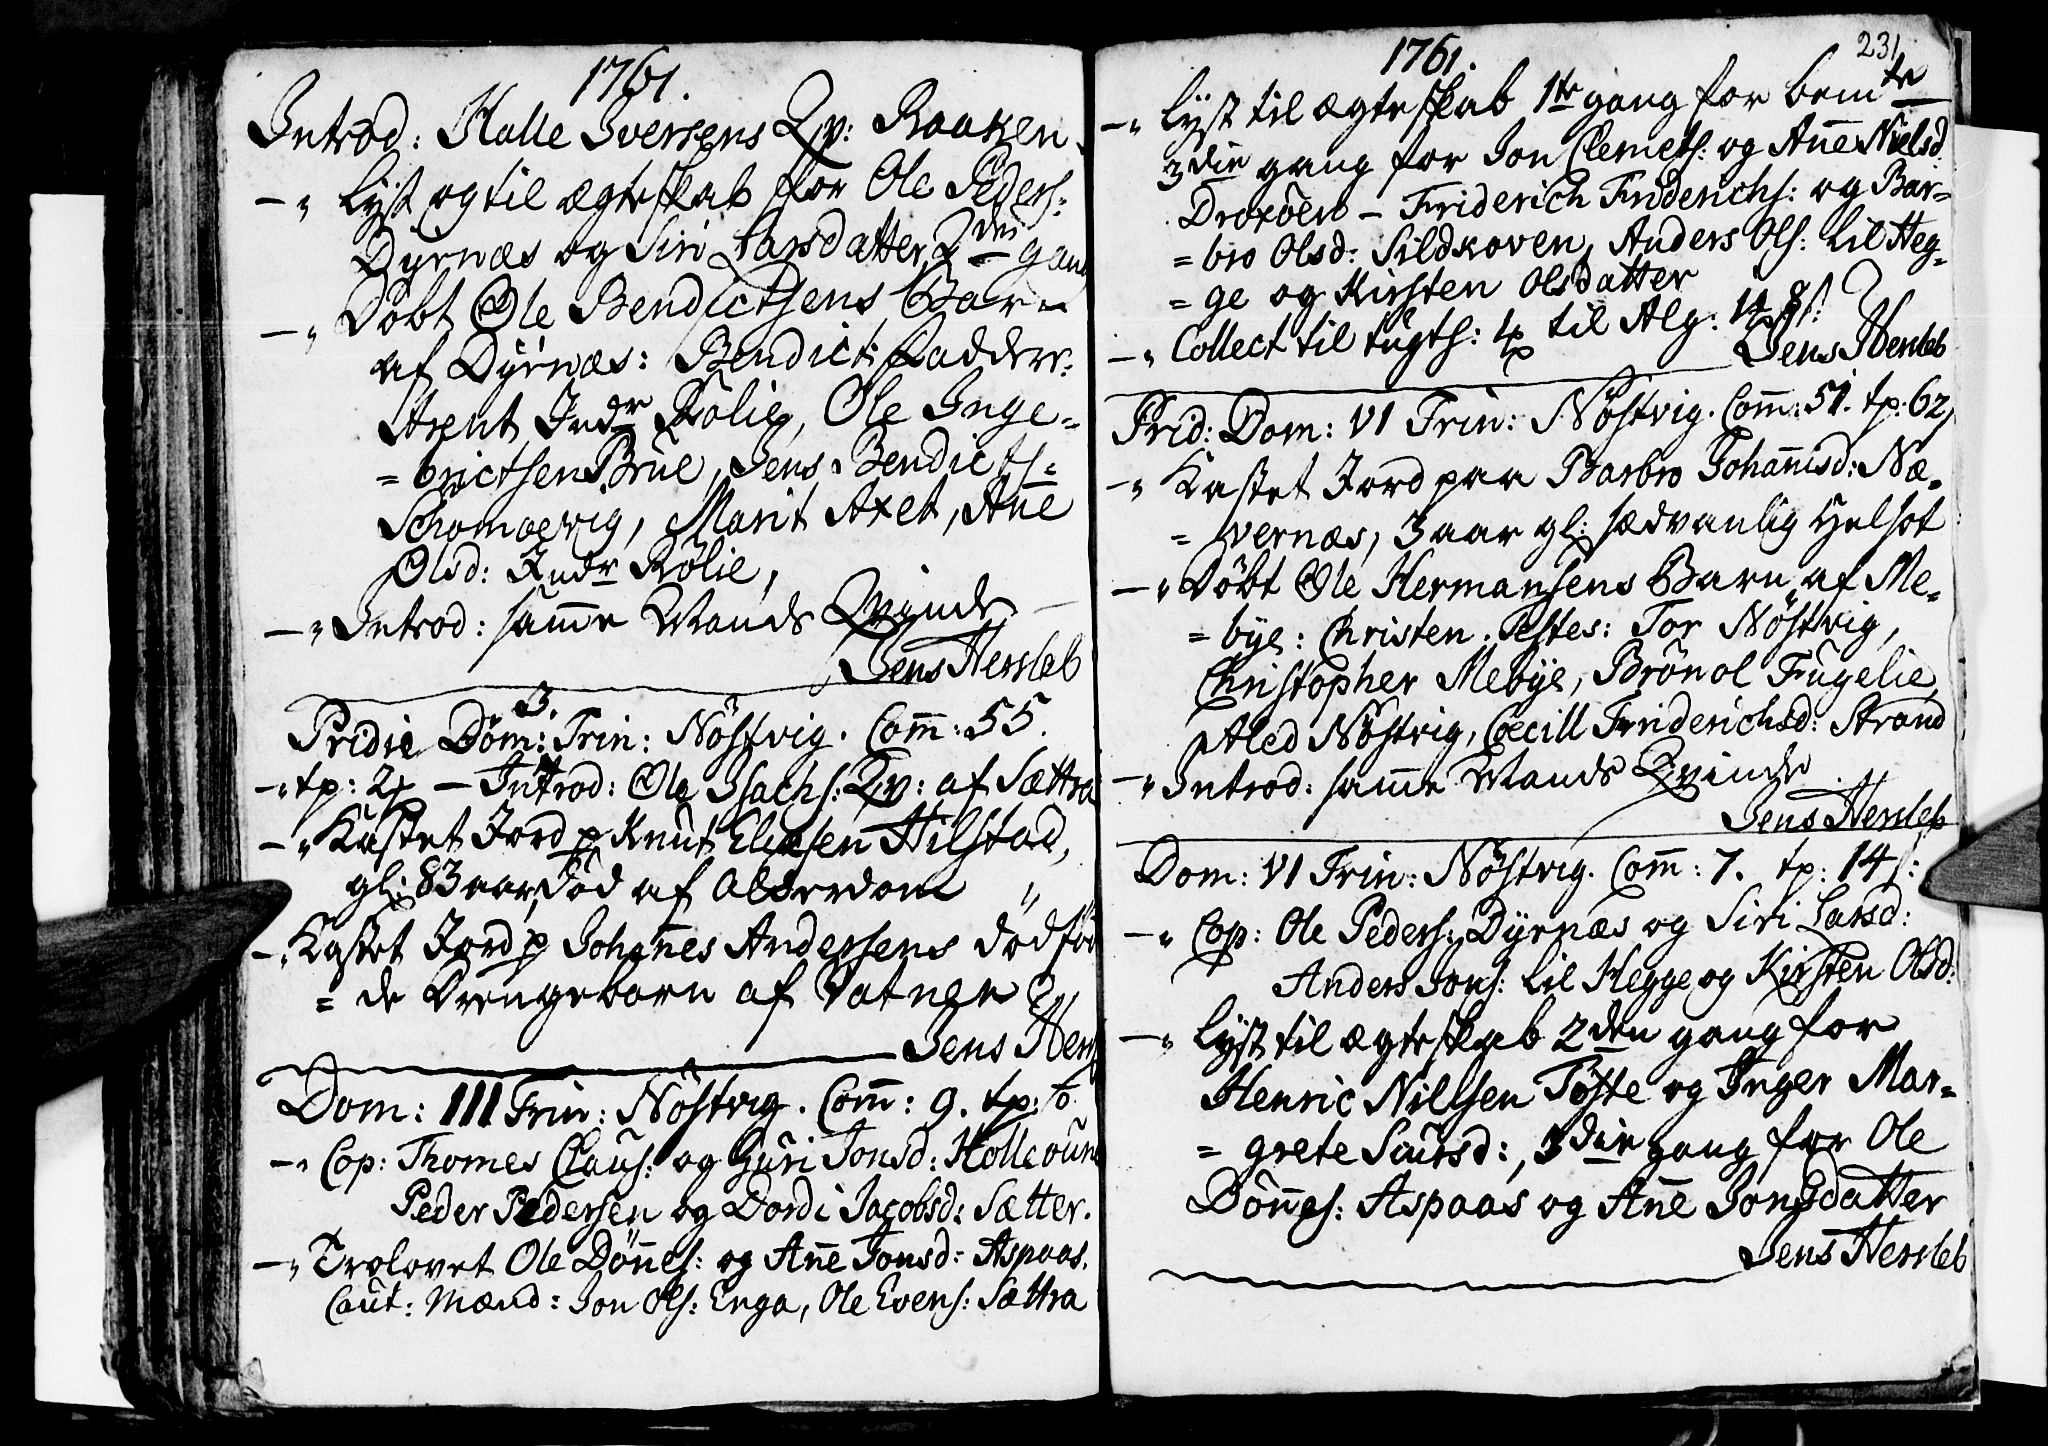 1761.
Introd: Halle Iversens Qv: Raaken
—„ lyst og til ægteskab for Ole Peders:
Dyrnæs og Siri Larsdatter 2den gang
—„ Döbt Ole Bendictsens Barn
af Dyrnæs: Bendict: Faddere:
Arent Indr Rölie, Ole Inge-
=brictsen Brue, Jens Bendicts:
Marit Axet, Añe
Olsd: Indr Rölie,
—„ Introd: sam̃e Mands Qvinde
Jens Hersleb
Pridie Dom: 3. Trin: Nöstvig. Com̃: 55.
—„ tp: — Introd: Ole Isachs: Qv: af Sættra
—„ Kastet Jord p Knut Elissen Hilstad,
gl: 83 aar, död af Alderdom
—„ Kastet Jord p Johañes Andersens dödföd
=de Drengebarn af Vatnen
Jens Hersl
Dom: III Trin: Nöstvig. Com̃: 9. tp:
—„ Cop: Thomes Claus: og Guri Jonsd: Holleoune
Peder Pedersen og Dordi Jacobsd: Sætter.
—„ Trolovet Ole Döñes: og Añe Jonsd: Aspaas.
Caut: Mænd: Jon Ols: Enga, Ole Evens: Sættra
1761.
231
—„ lyst til ægteskab 1te gang for bemte
3die gang for Jon Clemets: og Añe Nielsd:
Droxöen — Friderich Friderichs: og Bar-
=bro Olsd: Sildkoven, Anders Ols: Lil Heg-
=ge og Kirsten Olsdatter
—„ Collect til tugth: til Alg: 14 s:
Jens Hersleb
Prid: Dom: VI Trin: Nöstvig. Com̃: 51. tp: 62,
—„ Kastet Jord paa Barbro Johañisd: Næ-
=vernæs, 3 aar gl: sædvanlig Helsot
—„ Döbt Ole Hermansens Barn af Me-
=bye: Christen. Testes: Tor Nöstvig,
Christopher Mebye, Brönol Fugelie
Aled Nöstvig, Cecill Friderichsd: Strand
—„ Introd: sam̃e Mands Qvinde
Jens Hersleb
Dom: VI Trin: Nöstvig. Com̃: 7. tp: 14 s:
—„ Cop: Ole Peders: Dyrnæs og Siri Larsd:
Anders Jons: Lil Hegge og Kirsten Olsd:
—„ lyst til ægteskab 2den gang for
Henric Nillsen Töste og Inger Mar-
=grete Siursd:, 3die gang for Ole
Döñes: Aspaas og Añe Jonsdatter
Jens Hersleb